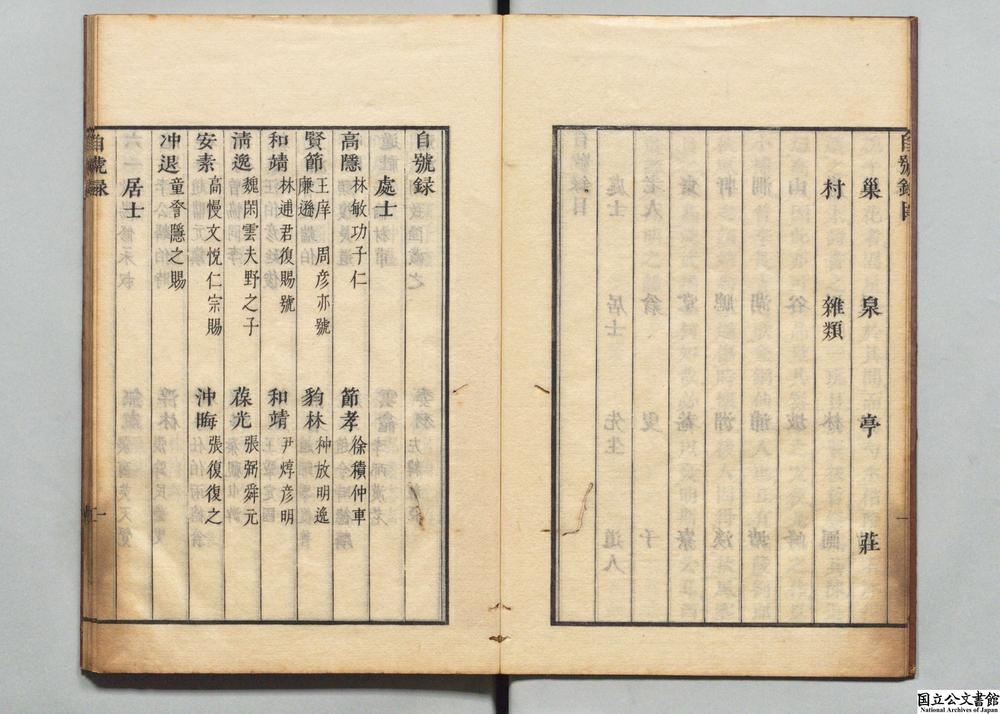 巢　泉　亭　莊
村　雜類
自號録
處士
高隱 林敏功子仁　節孝 徐積仲車
賢節 王庠 周彥亦號 廉遜　豹林 种放明逸
和靖 林逋君復賜號　和靖 尹焞彥明
清逸 魏閑雲夫野之子　葆光 張弼舜元
安素 高懌文悅仁宗賜　沖晦 張復復之
冲退 章詧隱之賜
居士
自號録
一
国立公文書館
National Archives of Japan